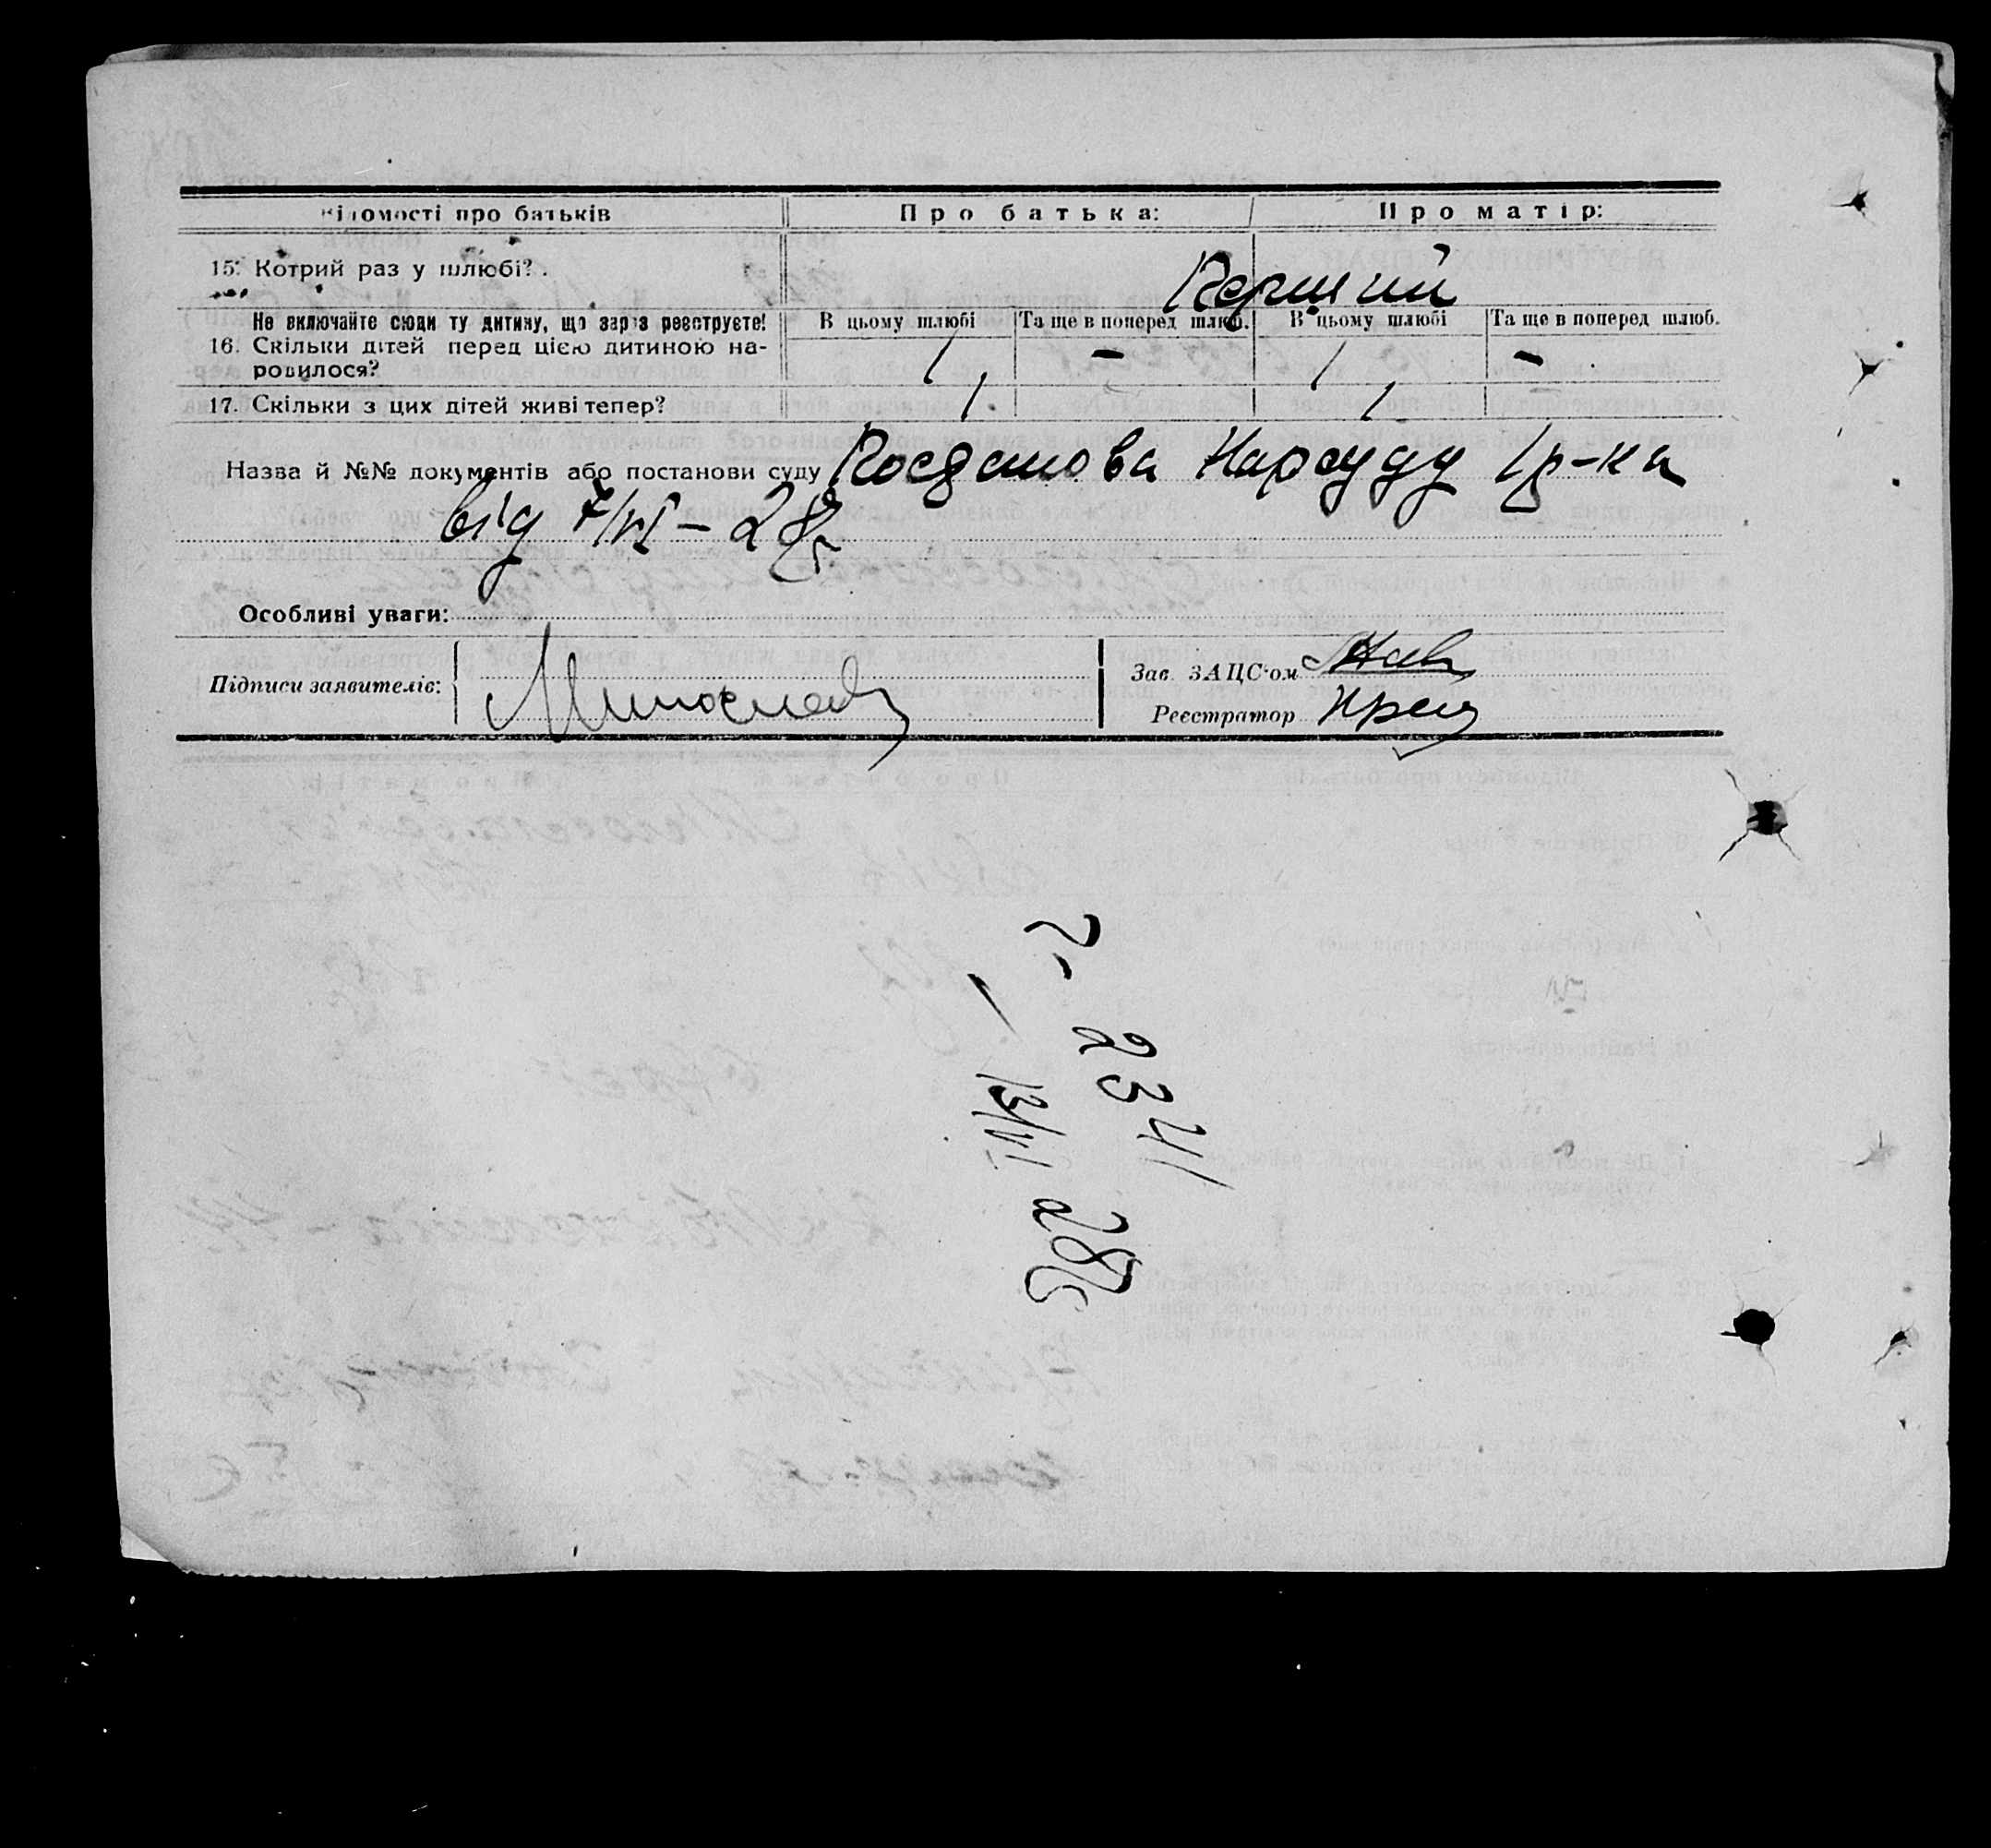 Відомості про батьків Про батька: Про матір:
15. Котрий раз у шлюбі? Перший
Не включайте сюди ту дитину, що зараз реєструєте! В цьому шлюбі Та ще в поперед шлюб. В цьому шлюбі Та ще в поперед шлюб.
16. Скільки дітей перед цією дитиною на-
родилося? 1 – 1 –
17. Скільки з цих дітей живі тепер? 1 1
Назва й №№ документів або постанови суду Нарсуду 1 р-ка
від 7/VI – 28 г
Особливі уваги:
Підписи заявителів:
Зав. ЗАЦС'ом
Реєстратор
2341
– 13/VI 28 г